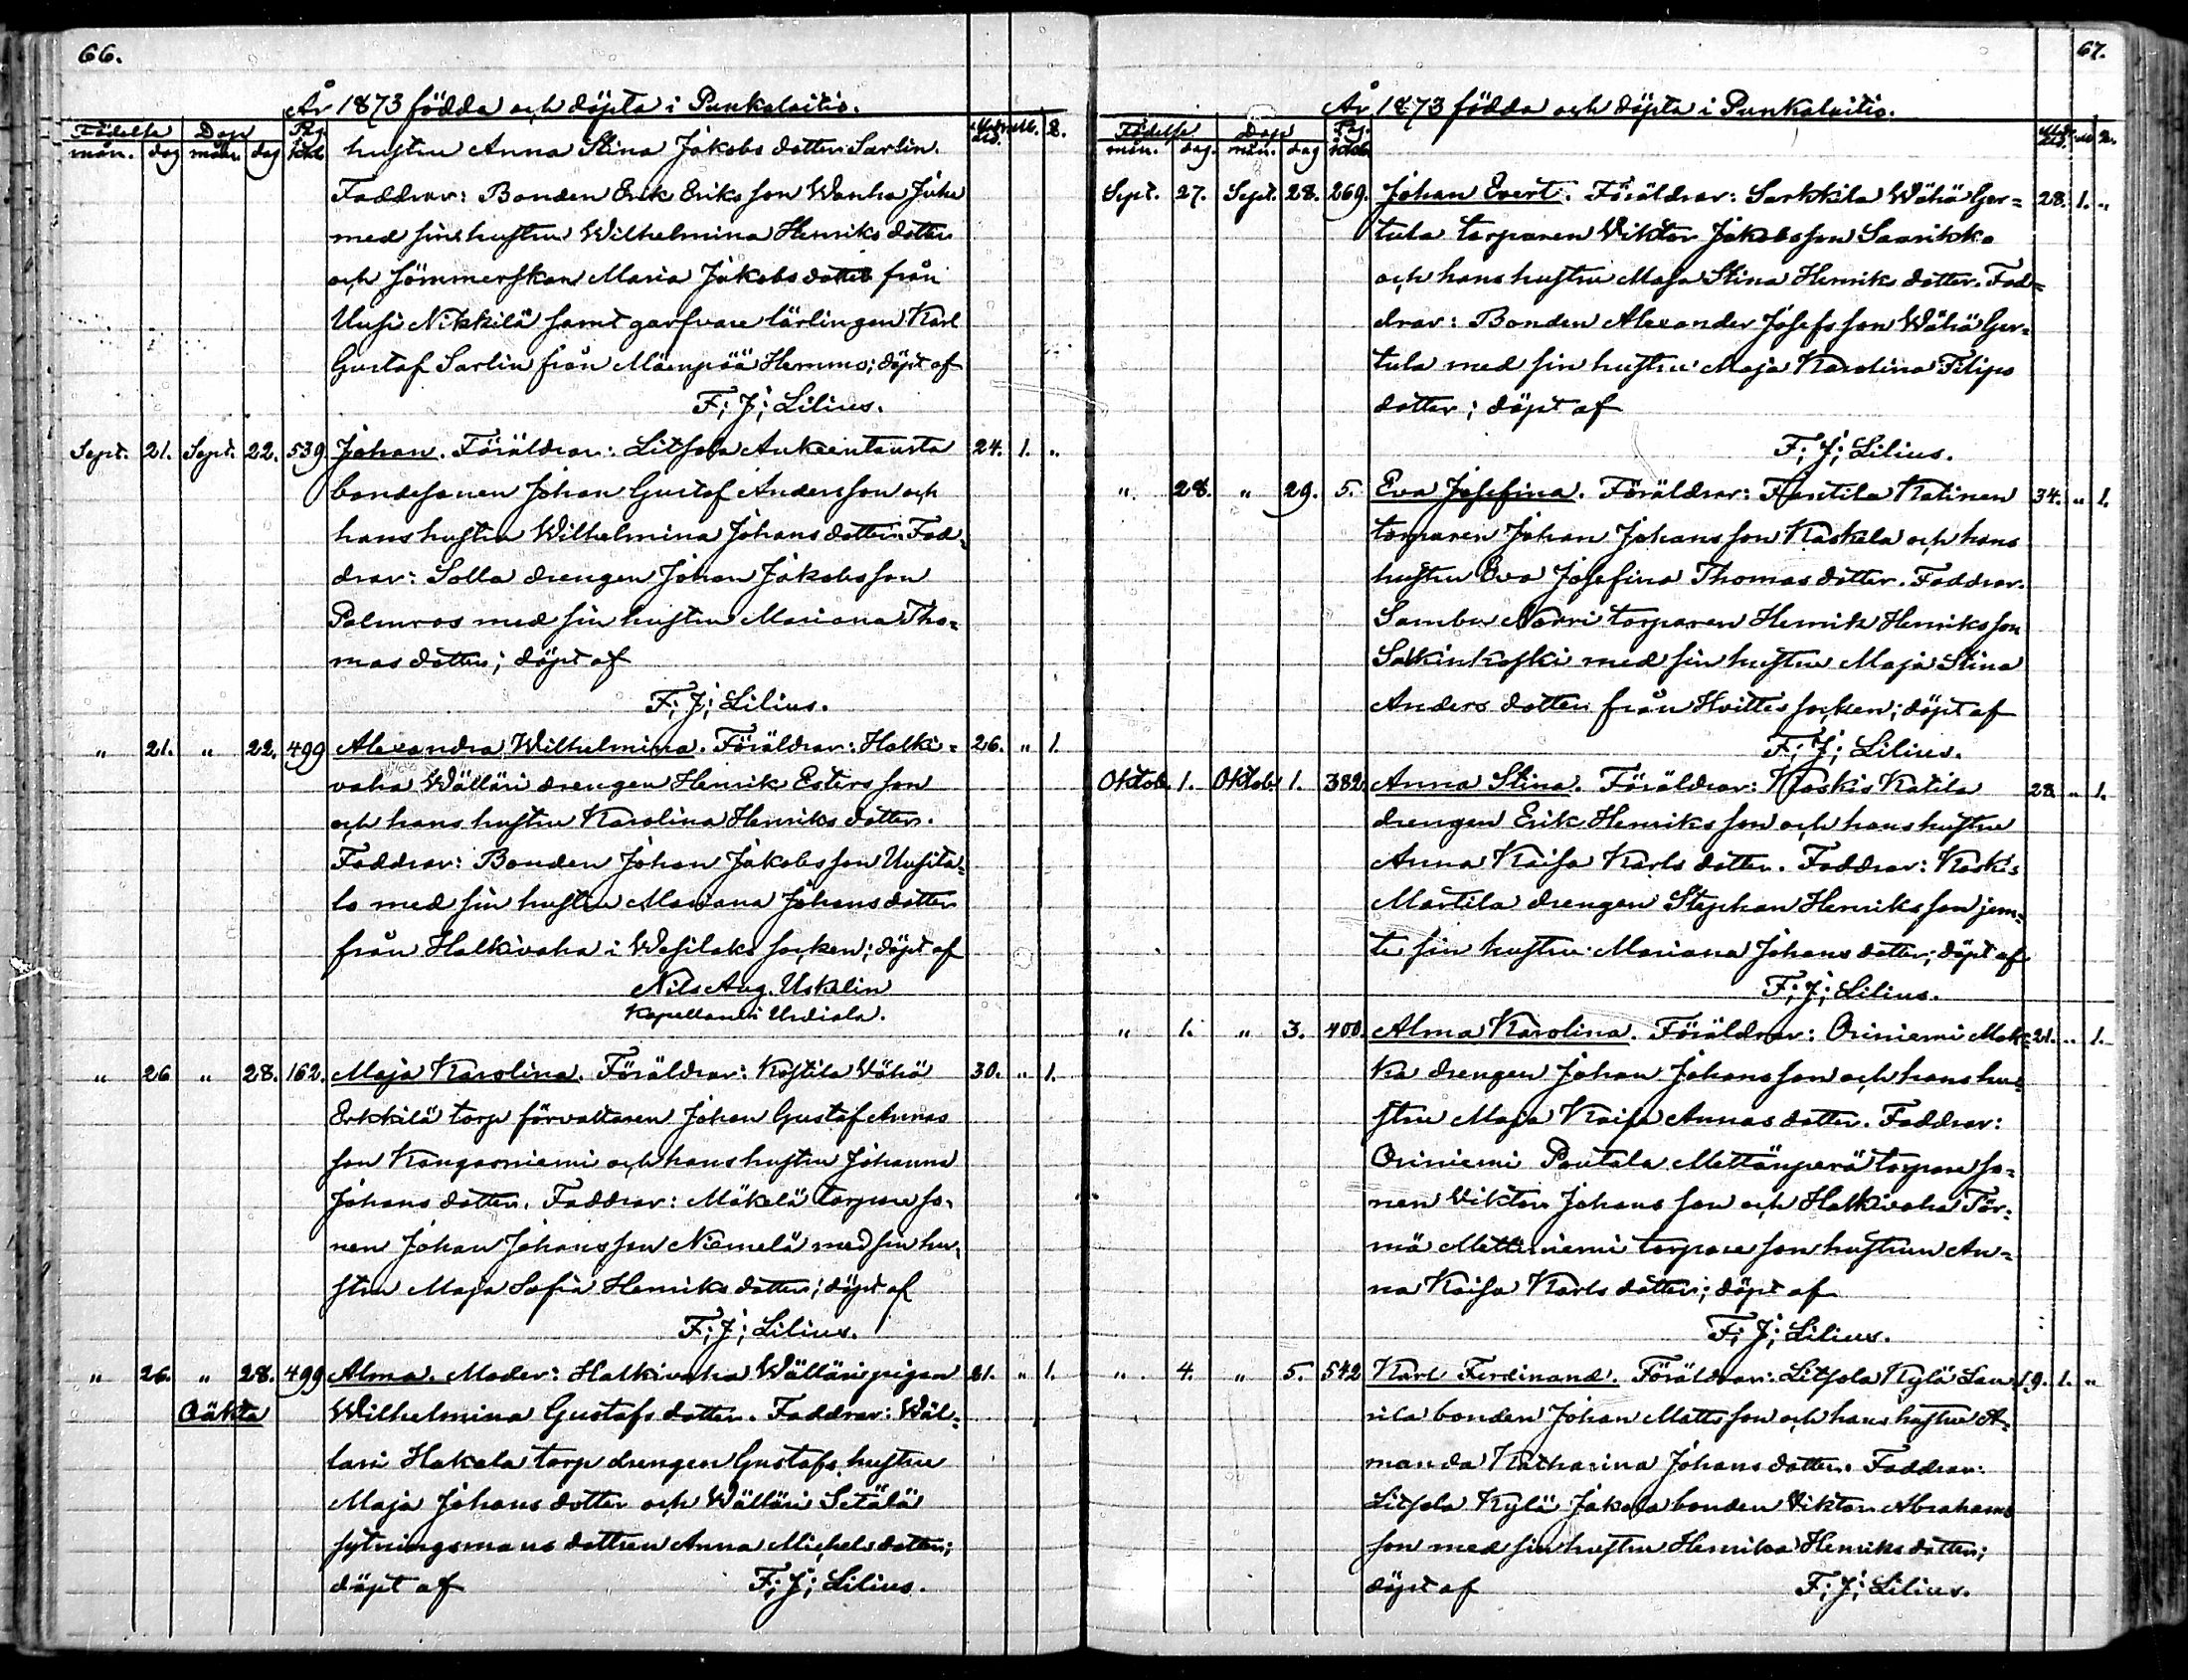 66.
År 1873 födda och döpta i Punkalaitio.
Födelse Dop Pag.
mån. dag mån. dag
hustru Anna Stina Jakobs dotter Sarlin.
Faddrar: Bonden Erik Eriksson Wanha Juho
med sin hustru Wilhelmina Henriks dotter
och sömmerskan Maria Jakobs dotter från
Uusi Nikkilä samt garfvare lärlingen Karl
Gustaf Sarlin från Mäenpää Hemmo; döpt af
F; J; Lilius.
Sept. 21. Sept. 22. 539. Johan. Föräldrar: Litsola Ankeentausta 24. 1. "
bondesonen Johan Gustaf Andersson och
hans hustru Wilhelmina Johans dotter. Fad-
drar: Solla drengen Johan Jakobsson
Palmros med sin hustru Mariana Tho-
mas dotter; döpt af
F; J; Lilius.
" 21. " 22. 499 Alexandra Wilhelmina. Föräldrar: Halki- 26. " 1.
vaha Wälläri drengen Henrik Estersson
och hans hustru Karolina Henriks dotter.
Faddrar: Bonden Johan Jakobsson Uusita-
lo med sin hustru Mariana Johans dotter
från Halkivaha i Wesilaks socken; döpt af
Nils Aug. Uskelin
Kapellan i Urdiala.
" 26 " 28. 162. Maja Karolina. Föräldrar: Kostila Wähä 30. " 1.
Erkkilä torp förvaltaren Johan Gustaf Annas
son Kangasniemi och hans hustru Johanna
Johans dotter. Faddrar: Mäkelä torpare so-
nen Johan Johansson Niemelä med sin hu-
stru Maja Sofia Henriks dotter; döpt af
F; J; Lilius.
" 26. " 28. 499 Alma. Moder: Halkivaha Wälläri pigan 21. " 1.
Oäkta Wilhelmina Gustafs dotter. Faddrar: Wäl-
läri Hakala torp drengen Gustafs hustru
Maja Johans dotter och Wälläri Setälä
sytningsmans dottren Anna Michels dotter;
döpt af F; J; Lilius.
67.
År 1873 födda och döpta i Punkalaitio.
Födelse Dop Pag.
mån. dag. mån. dag
Sept. 27. Sept. 28. 269. Johan Evert. Föräldrar: Sarkkila Wähä Ger- 28. 1. "
tula torparen Viktor Jakobsson Saarikko
och hans hustru Maja Stina Henriks dotter. Fad-
drar: Bonden Alexander Josefsson Wähä Ger-
tula med sin hustru Maja Karolina Filips
dotter; döpt af
F; J; Lilius.
" 28. " 29. 5. Eva Josefina. Föräldrar: Fantila Katinen 34. " 1.
torparen Johan Johansson Kaskela och hans
hustru Eva Josefina Thomas dotter. Faddrar.
Sambu Norri torparen Henrik Henriksson
Salkinkoski med sin hustru Maja Stina
Anders dotter från Hvittis socken; döpt af
F; J; Lilius.
Oktob. 1. Oktob. 1. 382. Anna Stina. Föräldrar: Koskis Katila 28 " 1.
drengen Erik Henriksson och hans hustru
Anna Kaisa Karls dotter. Faddrar: Koskis
Martila drengen Stephan Henriksson jem-
te sin hustru Mariana Johans dotter; döpt af
F; J; Lilius.
" 1. " 3. 400. Alma Karolina. Föräldrar: Oriniemi Mak- 21. " 1.
ka drengen Johan Johansson och hans hu-
stru Maja Kaisa Annas dotter. Faddrar:
Oriniemi Poutala Mettänperä torpare so-
nen Viktor Johansson och Halkivaha Tör-
mä Mettiniemi torpare son hustrun An-
na Kaisa Karls dotter; döpt af
F; J; Lilius.
" 4. " 5. 542 Karl Ferdinand. Föräldrar: Litsola Kylä Lau- 19. 1. "
rila bonden Johan Mattsson och hans hustru A-
manda Katharina Johans dotter. Faddrar:
Litsola Kylä Jakola bonden Viktor Abrahams
son med sin hustru Henrika Henriks dotter;
döpt af F; J; Lilius.